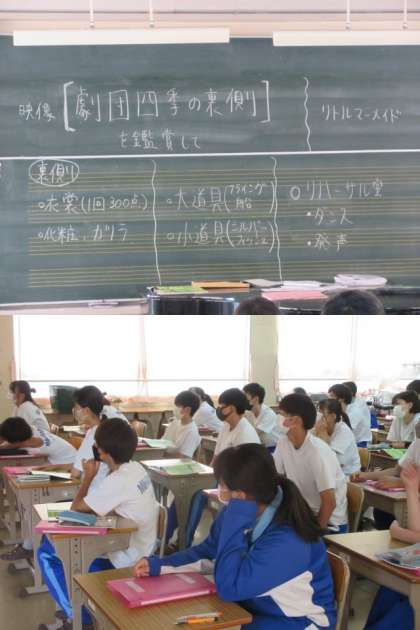 映像
[劇団四季の裏側]
を鑑賞して
リトルマーメイド
裏側
○衣裳(1回300点)
○化粧、カツラ
○大道具(フライング 船)
○小道具(シルバー フィッシュ)
○リハーサル室
・ダンス
・発声